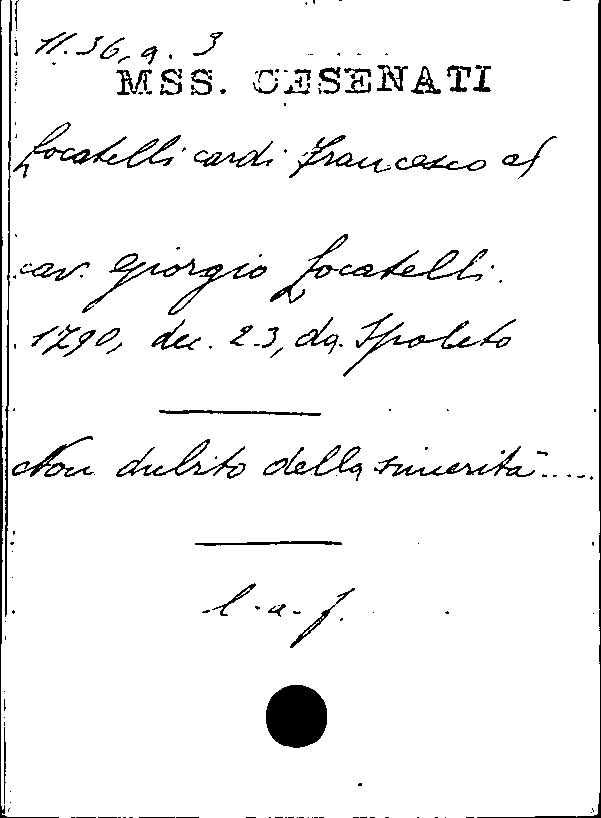 11.36, a. 3
MSS. CESENATI
Locatelli cardi Francesco al
cav. Giorgio Locatelli.
1790, dec. 23, da Spoleto
Non dubito della sincerità.....
l. a. f.